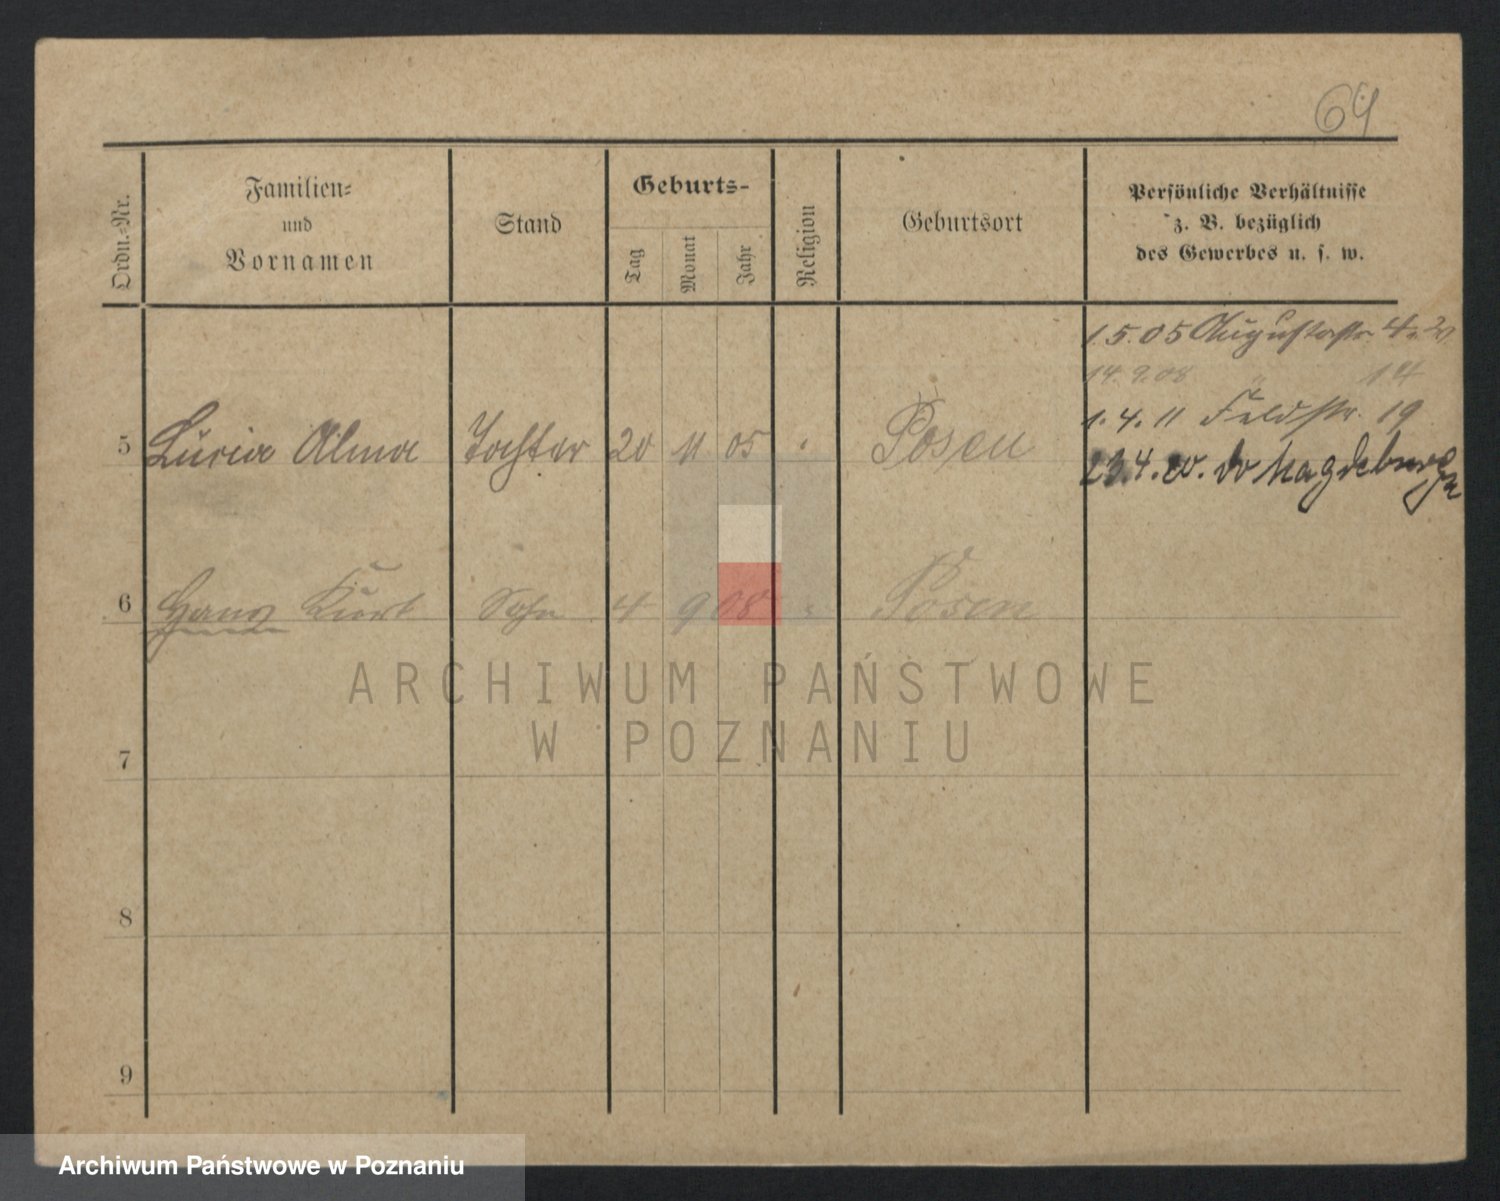 64
Ordn.-Nr.
Familien-
und
Vornamen
Stand
Geburts-
Tag
Monat
Jahr
Religion
Geburtsort
Persönliche Verhältnisse
z. B. bezüglich
des Gewerbes u. s. w.
1.5.05 Augustastr. 4
14.9.08 " 14
1.4.11 Feldstr. 19
5 Lucia Alma Tochter 20 11 05 Posen
23.4.20. Magdeburg
6 Hans Kurt Sohn 4 9 08 " Posen
ARCHIWUM PAŃSTWOWE
W POZNANIU
7
8
9
Archiwum Państwowe w Poznaniu